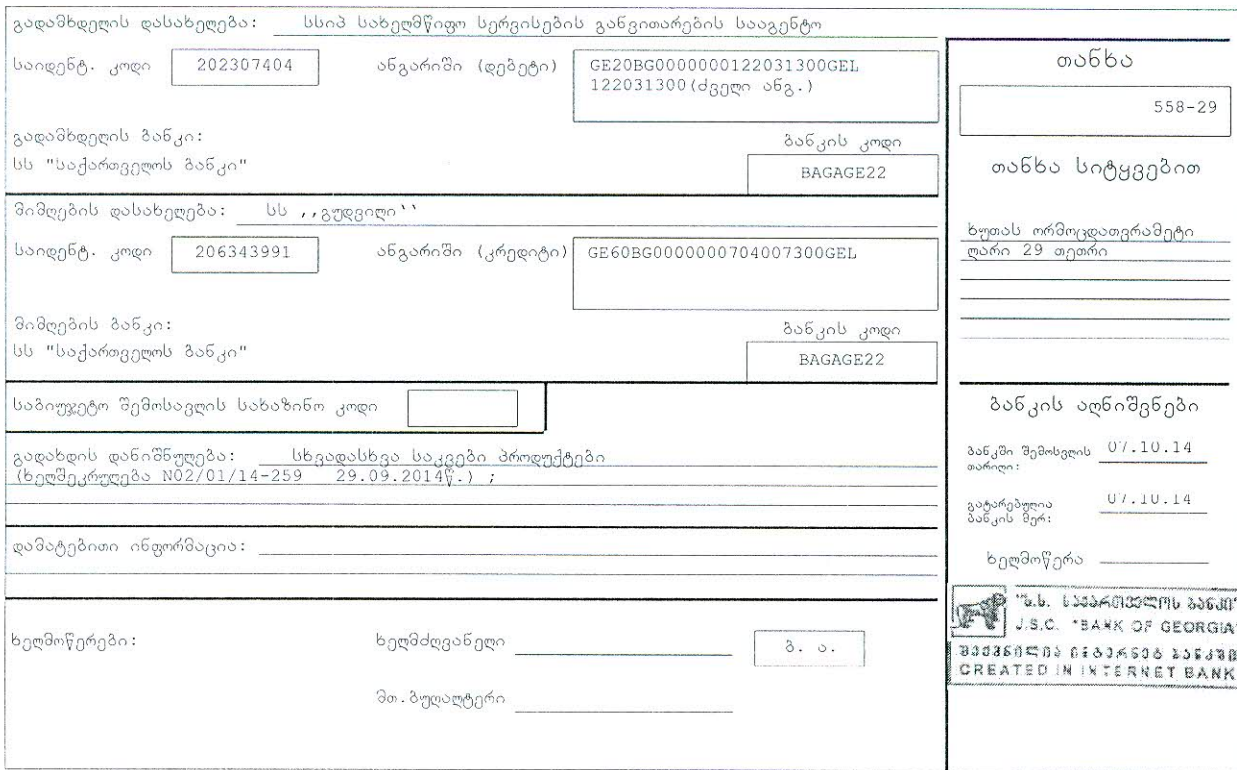 გადამხდელის დასახელება: სსიპ სახელმწიფო სერვისების განვითარების სააგენტო
საიდენტ. კოდი 202307404 ანგარიში (დებეტი) GE20BG0000000122031300GEL
122031300(ძველი ანგ.)
გადამხდელის ბანკი: ბანკის კოდი
სს "საქართველოს ბანკი" BAGAGE22
მიმღების დასახელება: სს ,,გუდვილი``
საიდენტ. კოდი 206343991 ანგარიში (კრედიტი) GE60BG0000000704007300GEL
მიმღების ბანკი: ბანკის კოდი
სს "საქართველოს ბანკი" BAGAGE22
საბიუჯეტო შემოსავლის სახაზინო კოდი
გადახდის დანიშნულება: სხვადასხვა საკვები პროდუქტები
(ხელშეკრულება N02/01/14-259 29.09.2014წ.) ;
დამატებითი ინფორმაცია:
ხელმოწერები: ხელმძღვანელი ბ. ა.
მთ.ბუღალტერი
თანხა
558-29
თანხა სიტყვებით
ხუთას ორმოცდათვრამეტი
ლარი 29 თეთრი
ბანკის აღნიშვნები
ბანკში შემოსვლის 07.10.14
თარიღი:
გატარებულია 07.10.14
ბანკის მერ:
ხელმოწერა
"ს.ს. საქართველოს ბანკი"
J.S.C. "BANK OF GEORGIA"
შექმნილია ინტერნეტ ბანკში
CREATED IN INTERNET BANK